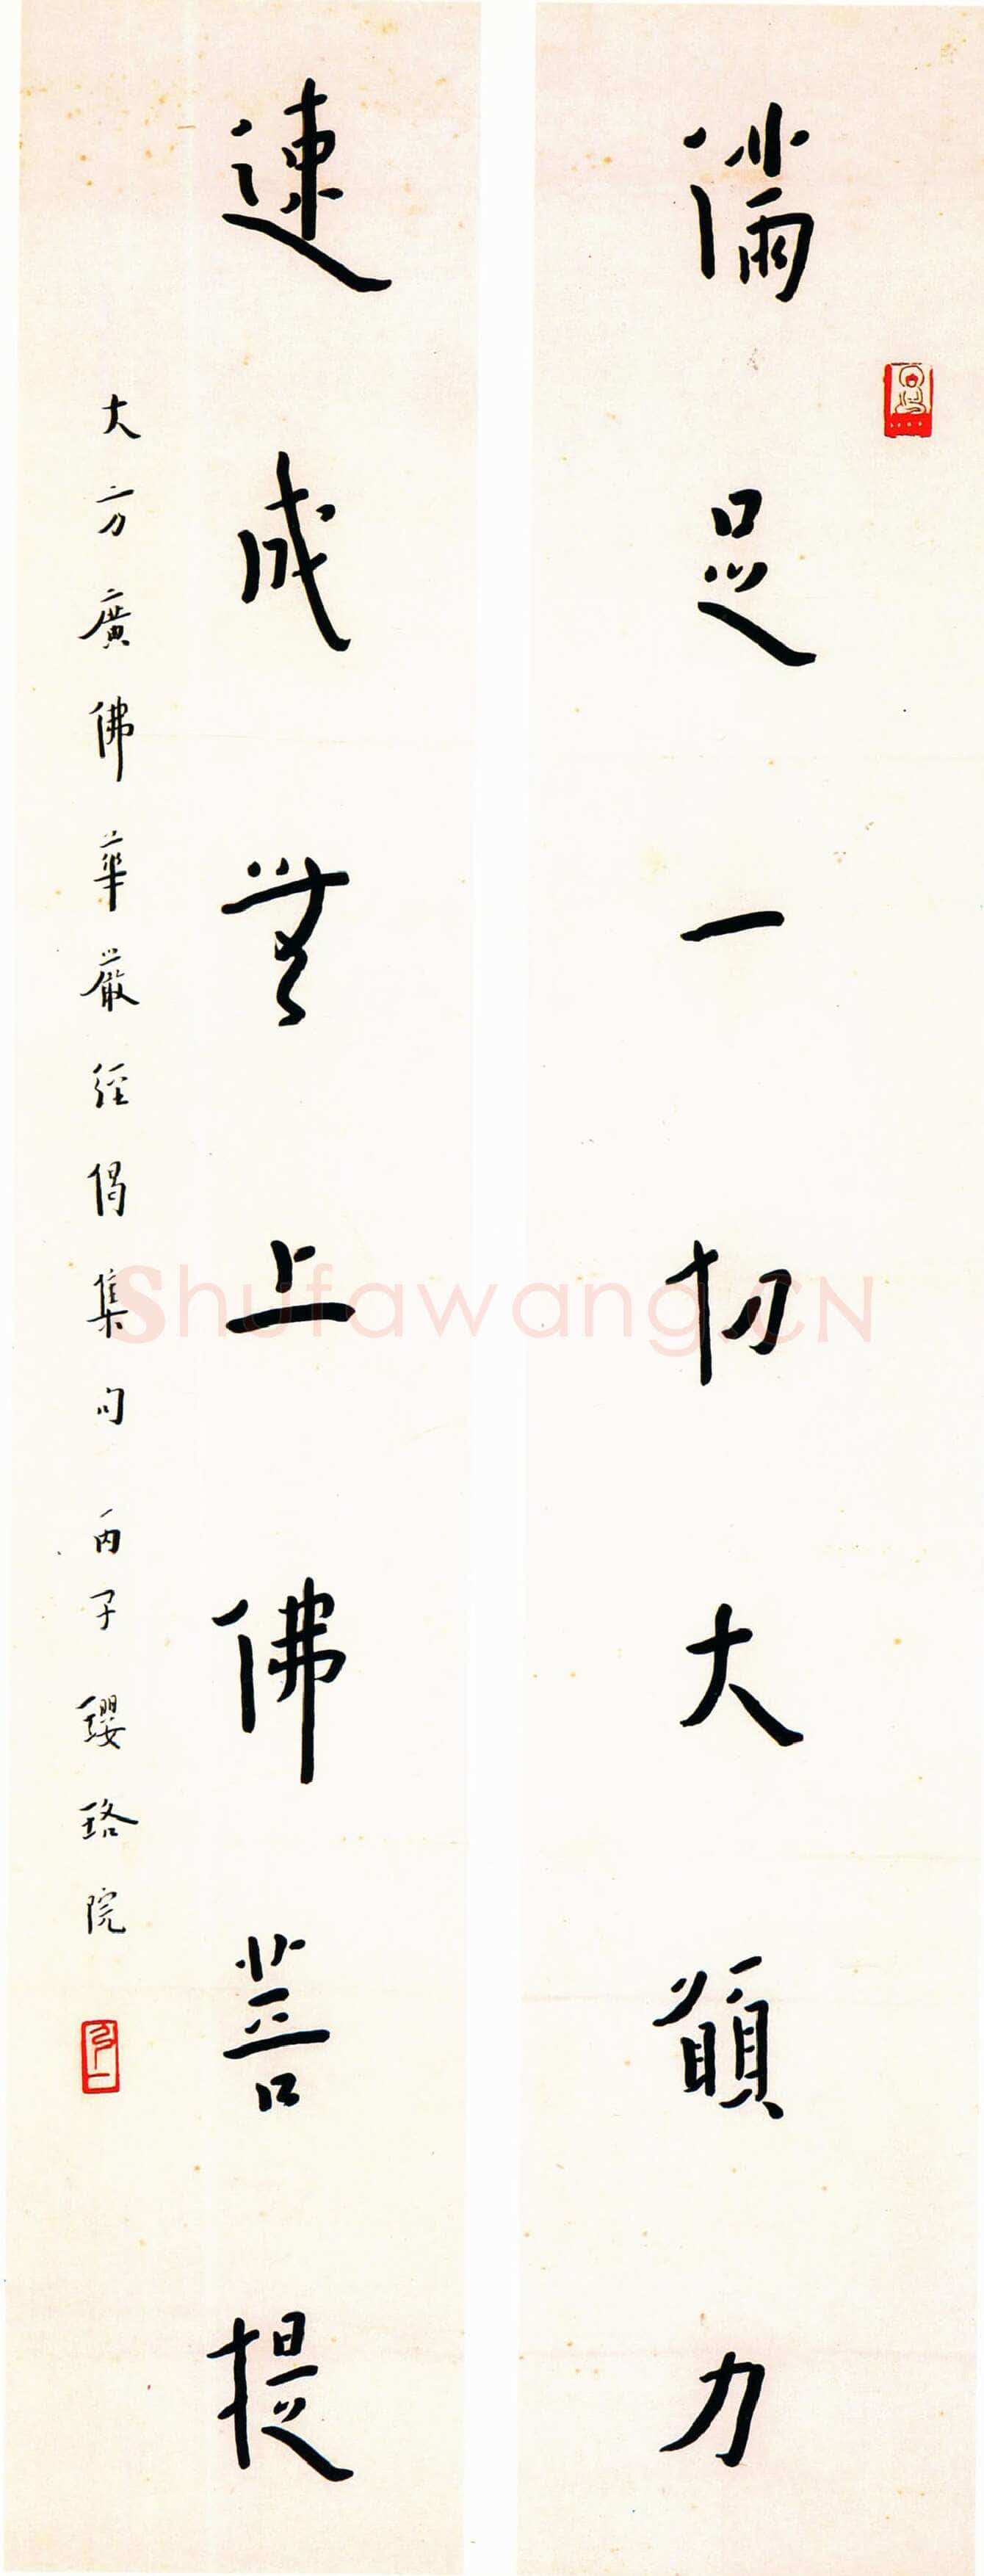 满足一切大願力
速成無上佛菩提
大方廣佛華嚴經偈集句 丙子 纓珞院
弘一
Shufawang.CN